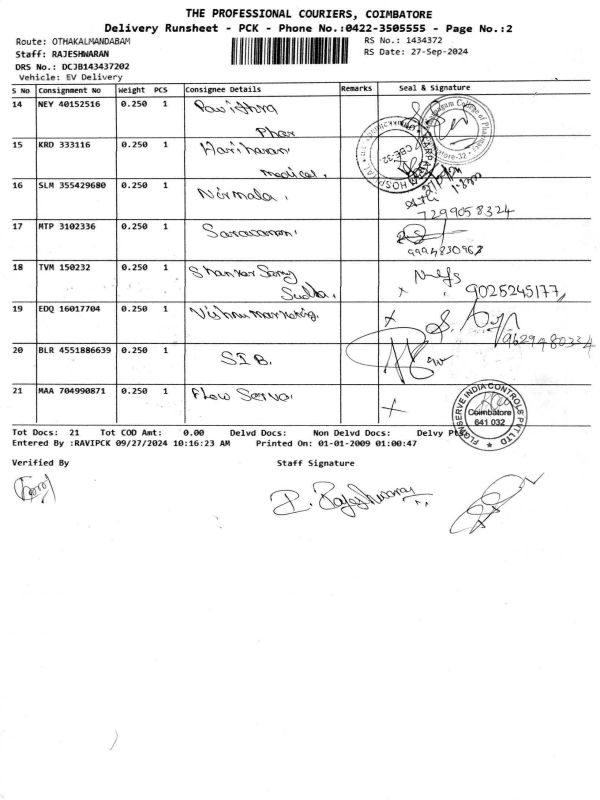 THE PROFESSIONAL COURIERS, COIMBATORE
Delivery Runsheet - PCK - Phone No.:0422-3505555 - Page No.:2
Route: OTHAKALMANDABAM
RS No.: 1434372
Staff: RAJESHWARAN
RS Date: 27-Sep-2024
DRS No.: DCJB143437202
Vehicle: EV Delivery
S No Consignment No Weight PCS Consignee Details Remarks Seal & Signature
14 NEY 40152516 0.250 1 Pavithra
Phar
15 KRD 333116 0.250 1 Hariharan
medical.
16 SLM 355429680 0.250 1 Nirmala.
7299058324
17 MTP 3102336 0.250 1 Saravanan.
9994830968
18 TVM 150232 0.250 1 Shankar Samy
Sudha.
9025245177
19 EDQ 16017704 0.250 1 Vishnu marketing.
9629480334
20 BLR 4551886639 0.250 1 SIB.
21 MAA 704990871 0.250 1 Flow Servo.
FLOWSERVE INDIA CONTROLS PVT LTD
Coimbatore
641 032
Tot Docs: 21 Tot COD Amt: 0.00 Delvd Docs: Non Delvd Docs: Delvy
Entered By :RAVIPCK 09/27/2024 10:16:23 AM Printed On: 01-01-2009 01:00:47
Verified By Staff Signature
P. Rajeshwaran